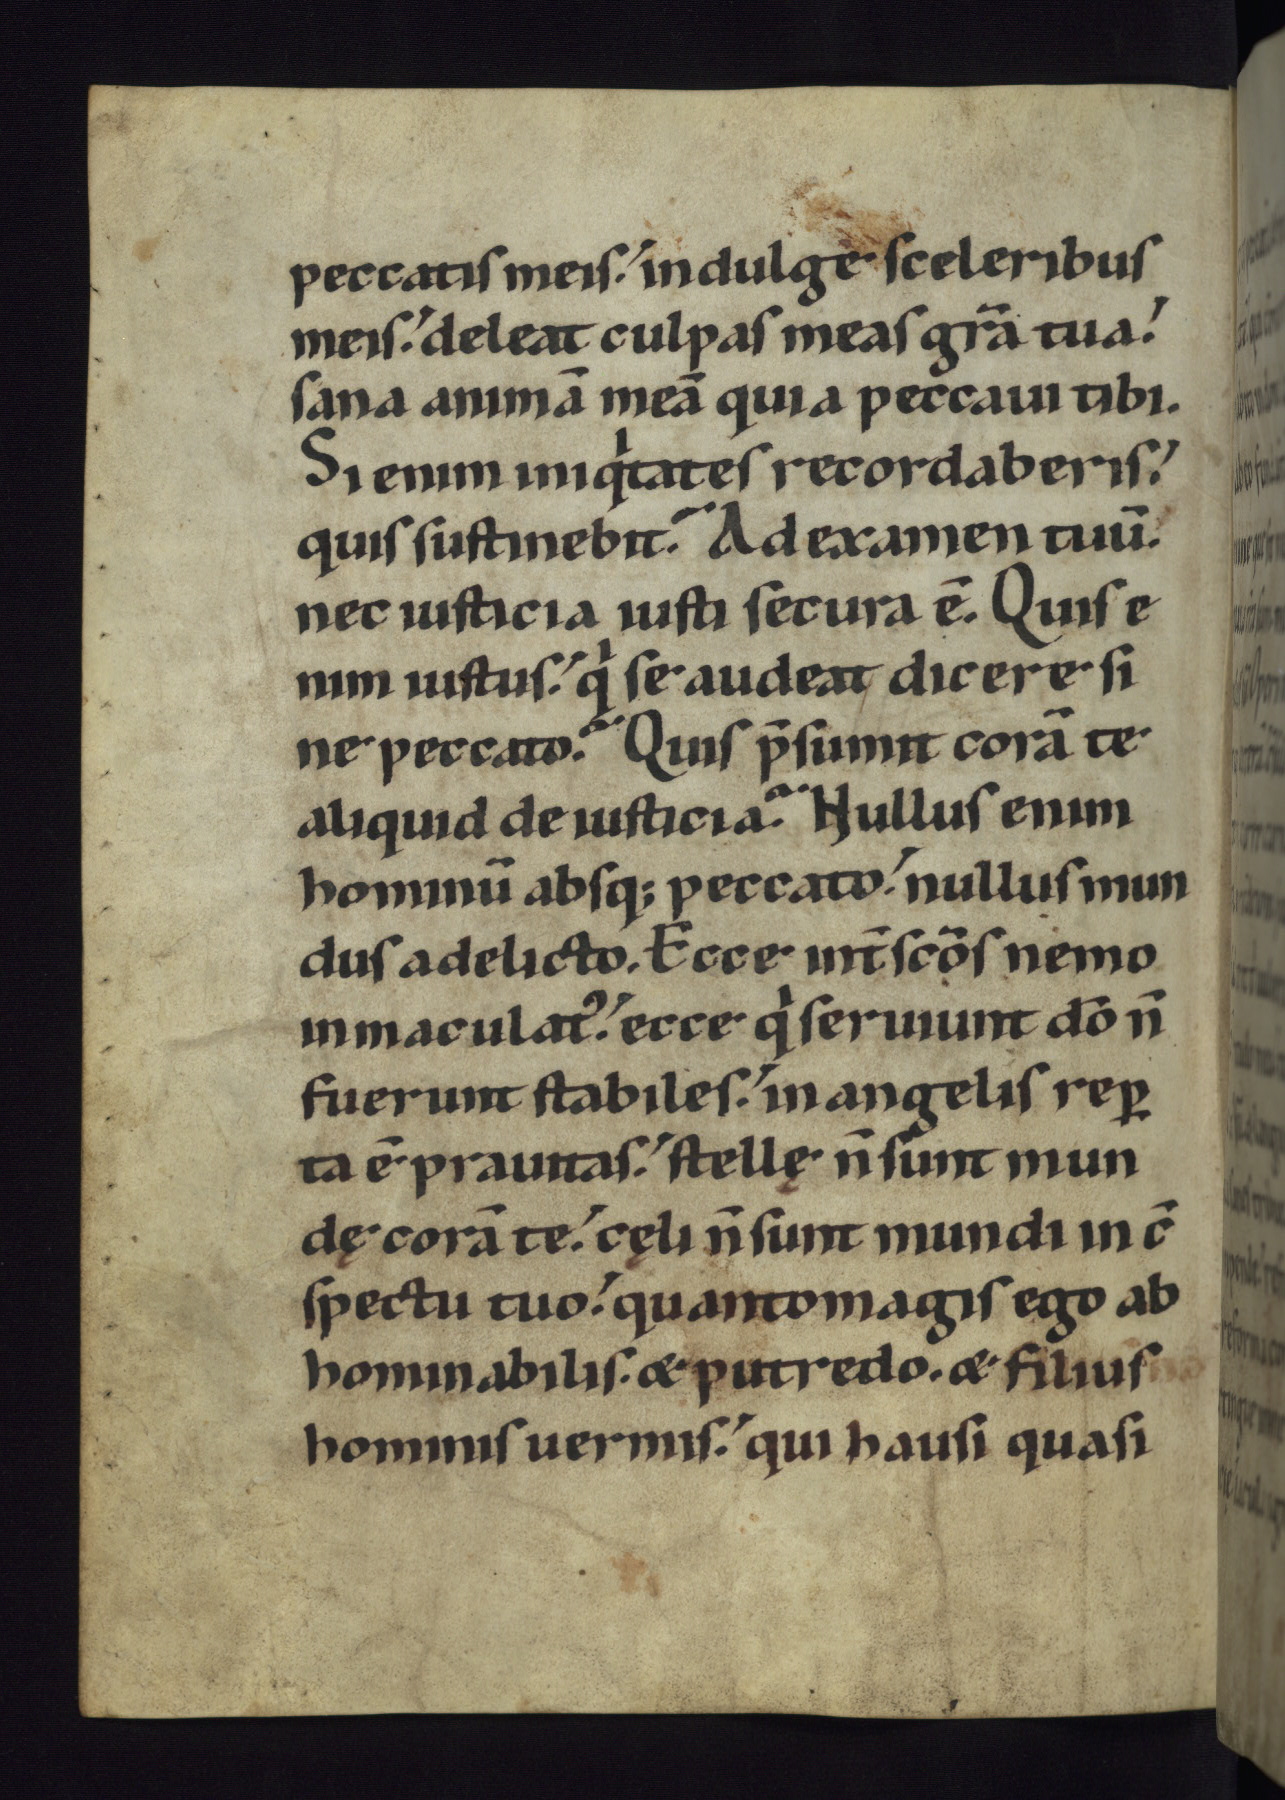 peccatis meis.' indulge sceleribus
meis.' deleat culpas meas gr̃a tua.'
sana animā meā quia peccaui tibi.
Si enim iniqͥtates recordaberis.'
quis sustinebit? Ad examen tuū.
nec iusticia iusti secura ē. Quis e
nim iustus.' qͥ se audeat dicere si
ne peccato? Quis p̄sumit corā te
aliquid de iusticia? Nullus enim
hominū absq; peccato.' nullus mun
dus a delicto. Ecce int̄ sc̄os nemo
inmaculatꝰ.' ecce qͥ seruiunt dō n̄
fuerunt stabiles.' in angelis rep̱
ta ē prauitas.' stellę n̄ sunt mun
dę corā te.' cęli n̄ sunt mundi in c̄
spectu tuo.' quanto magis ego ab
hominabilis. & putredo. & filius
hominis uermis.' qui hausi quasi